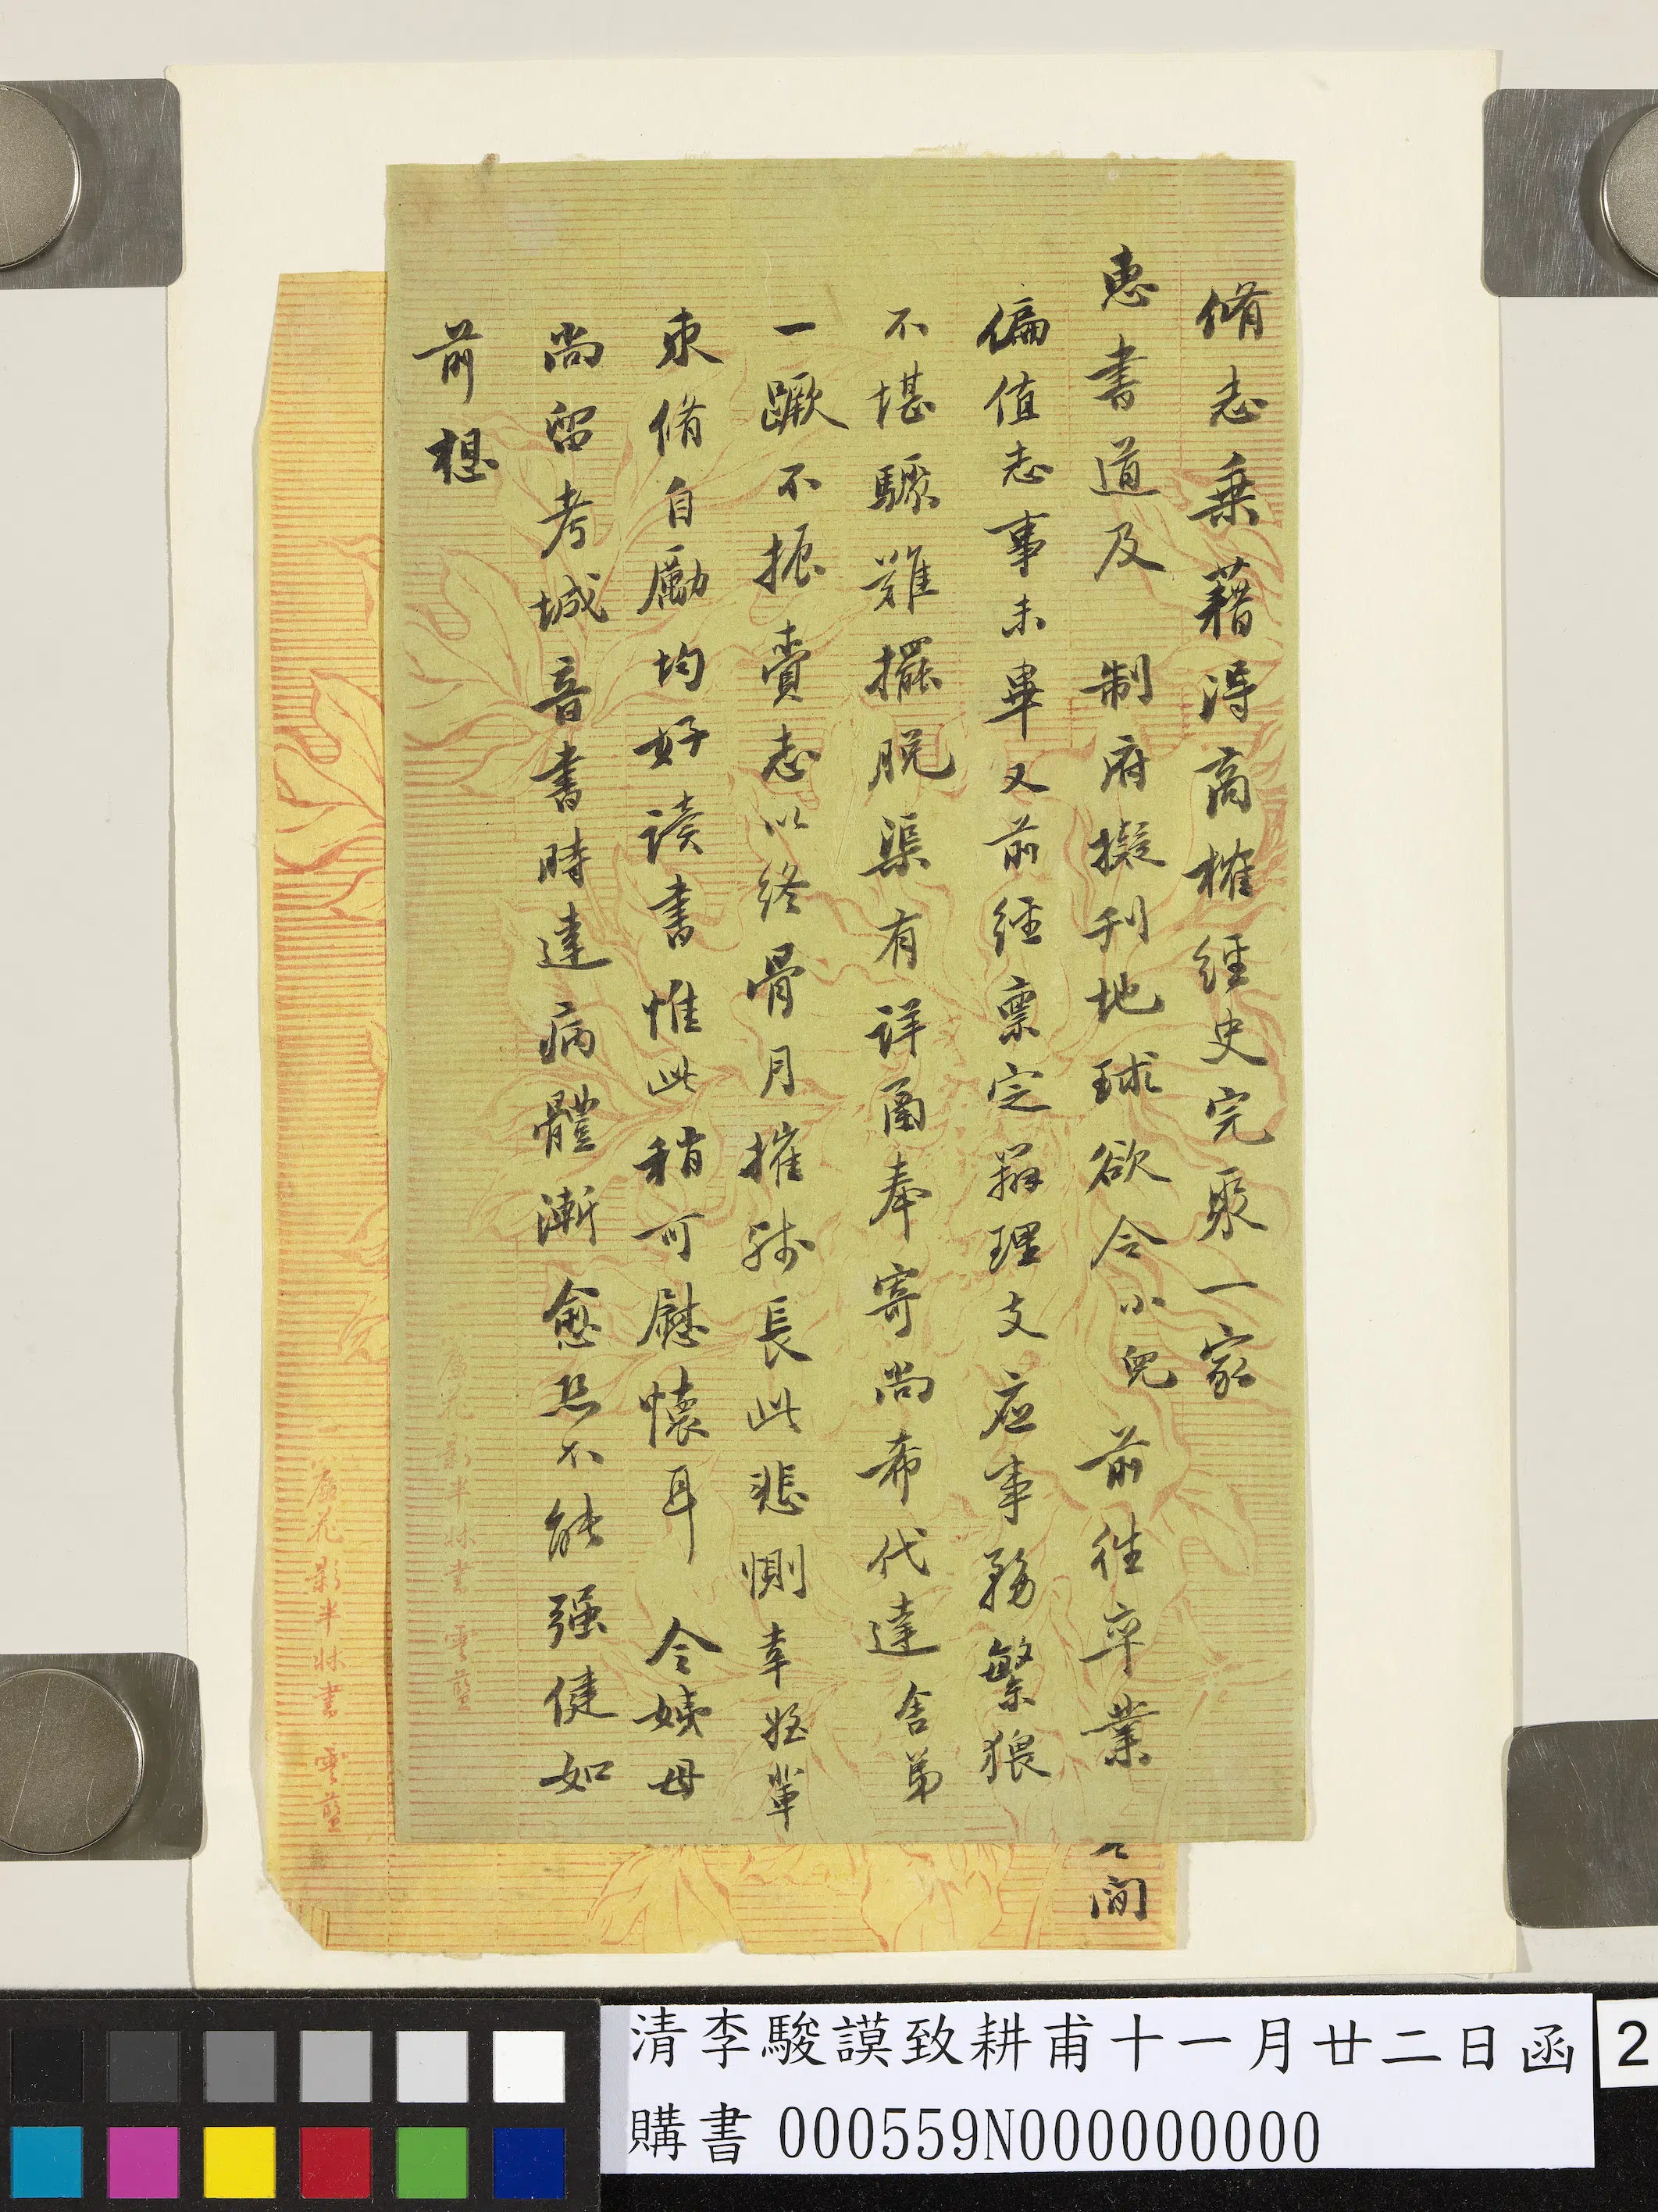 脩志乗藉得商榷經史完聚一家
惠書道及　制府擬刊地球欲令小兒　前往卒業
偏值志事未畢又前經稟定辦理支應事務繁猥
不堪驟難擺脫渠有詳函奉寄尚希代達舍弟
一蹶不振賫志以終骨月摧殘長此悲惻幸姪輩
束脩自勵均好讀書惟此稍可慰懷耳　令嬸母
尚留考城音書時達病體漸愈恐不能强健如
前想
間
花影半牀書　雲藍
花影半牀書　雲藍
清李駿謨致耕甫十一月廿二日函
購書 000559N000000000
2